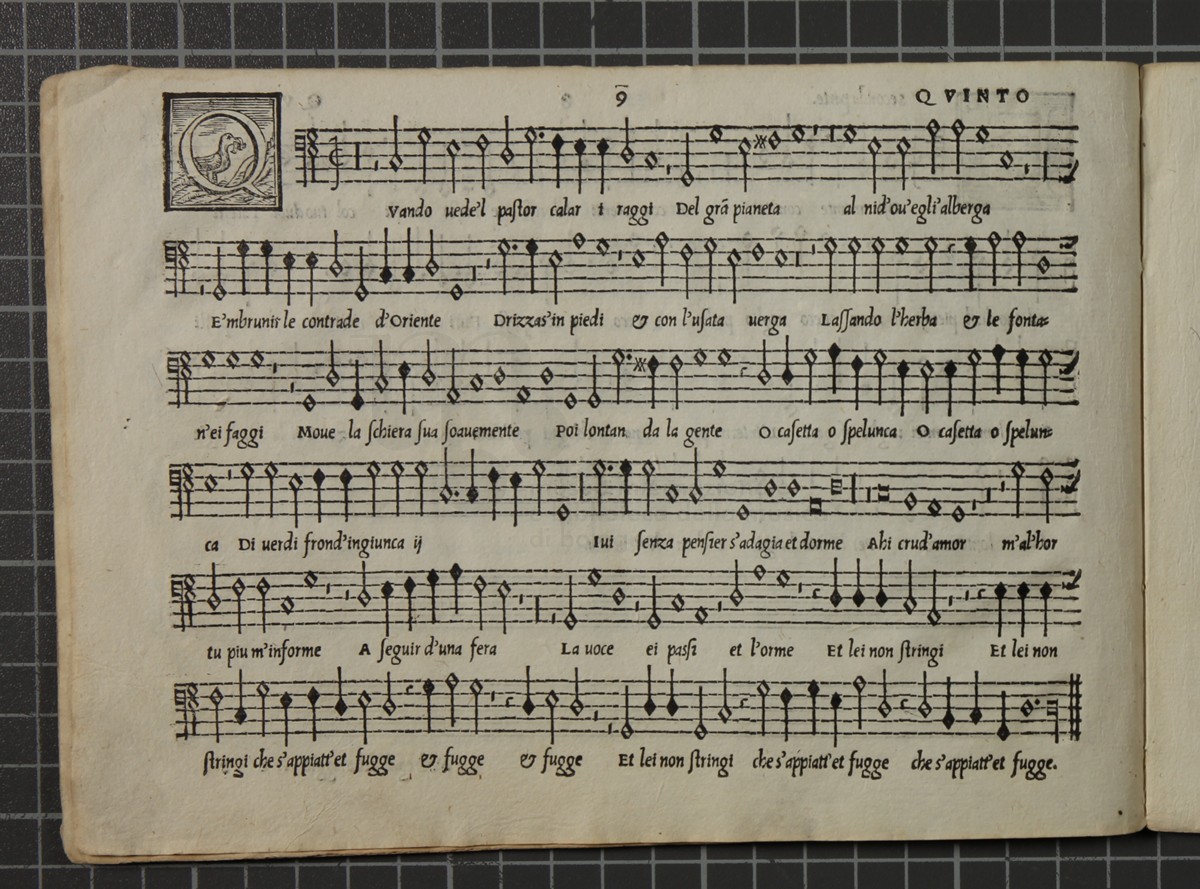 9 QVINTO
QVando uede'l paſtor calar i raggi Del grã pianeta al nid'ou'egli'alberga
E'mbrunir le contrade d'Oriente Drizzas'in piedi & con l'uſata uerga Laſſando l'herba & le fonta=
n'ei faggi Moue la ſchiera ſua ſoauemente Poi lontan da la gente O caſetta o ſpelunca O caſetta o ſpelun=
ca Di uerdi frond'ingiunca ij Iui ſenza penſier s'adagia et dorme Ahi crud'amor m'al'hor
tu piu m'informe A ſeguir d'una fera La uoce ei paſſi et l'orme Et lei non ſtringi Et lei non
ſtringi che s'appiatt'et fugge & fugge & fugge Et lei non ſtringi che s'appiatt'et fugge che s'appiatt'et fugge.